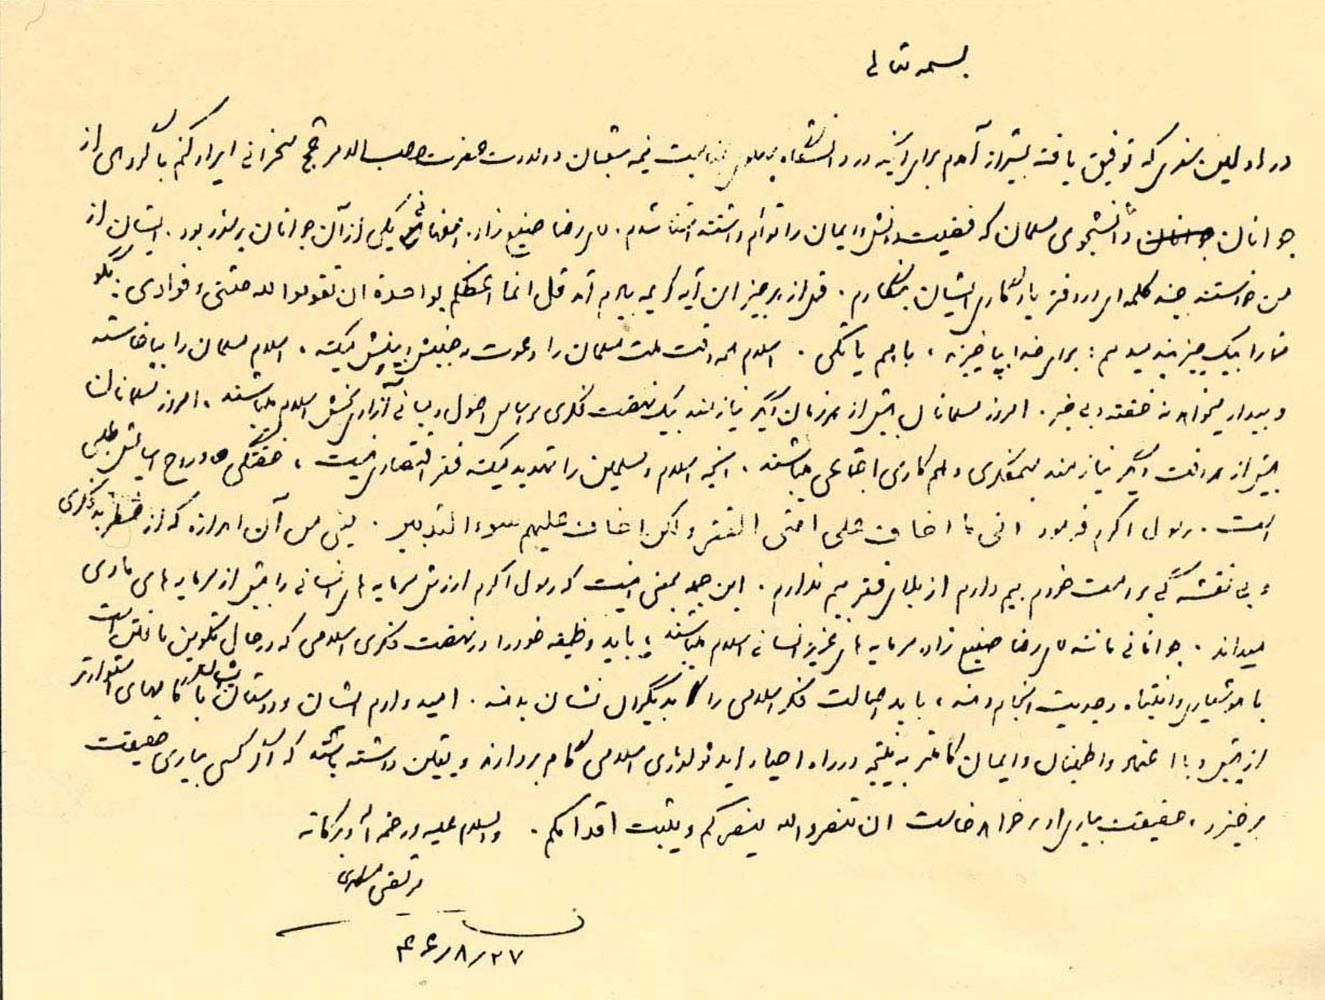 بسمه تعالی
در اولین سفری که توفیق یافته بشیراز آمدم برای آنکه در دانشگاه پهلوی بمناسبت نیمه شعبان و ولادت حضرت صاحب الامر عج سخنرانی ایراد کنم با گروهی از
جوانان دانشجوی مسلمان که فضیلت دانش و ایمان را توأم داشتند آشنا شدم. آقای رضا صنیع زاده اصفهانی یکی از آن جوانان برومند بود. ایشان از
من خواستند چند کلمه ای در دفتر یادگاری ایشان بنگارم. قبل از هر چیز این آیه کریمه بیادم آمد قل انما اعظکم بواحدة ان تقوموا لله مثنی و فرادی. بگو
شما را بیک چیز پند میدهم: برای خدا بپا خیزید، با هم یا تکی. اسلام همه وقت ملت مسلمان را دعوت به جنبش و بینش میکند، اسلام مسلمان را بپاخاسته
و بیدار میخواهد نه خفته و بی خبر. امروز مسلمانان بیش از هر زمان دیگر نیازمند بیک نهضت فکری بر اساس اصول و مبانی آزادی بخش اسلام میباشند، امروز مسلمانان
بیش از هر وقت دیگر نیازمند بهمفکری و همکاری اجتماعی میباشند. آنچه اسلام و مسلمین را تهدید میکند فقر اقتصادی نیست، خفتگی ها و روح آسایش طلبی
است. رسول اکرم فرمود انی ما اخاف علی امتی الفقر ولکن اخاف علیهم سوء التدبیر. یعنی من آن اندازه که از خطر بدفکری
و بی نقشه گی بر امت خودم بیم دارم از بلای فقر بیم ندارم. این جمله بمعنی اینست که رسول اکرم ارزش سرمایه های انسانی را بیش از سرمایه های مادی
میداند. جوانانی مانند آقای رضا صنیع زاده سرمایه های عزیز انسانی اسلام میباشند و باید وظیفه خود را در نهضت فکری اسلامی که در حال تکوین یافتن است
با هوشیاری و انتباه و جدیت انجام دهند، باید اصالت فکر اسلامی را بدیگران نشان بدهند. امیدوارم ایشان و دوستان با گامهای استوارتر
از پیش و با اعتماد و اطمینان و ایمان کاملتر به نتیجه در راه احیاء ایدئولوژی اسلامی گام بردارند و یقین داشته باشند که اگر کسی بیاری حقیقت
برخیزد، حقیقت بیاری او برخواهد خاست ان تنصروا الله ینصرکم و یثبت اقدامکم. والسلام علیه و رحمة الله و برکاته
مرتضی مطهری
۴۶/۸/۲۷